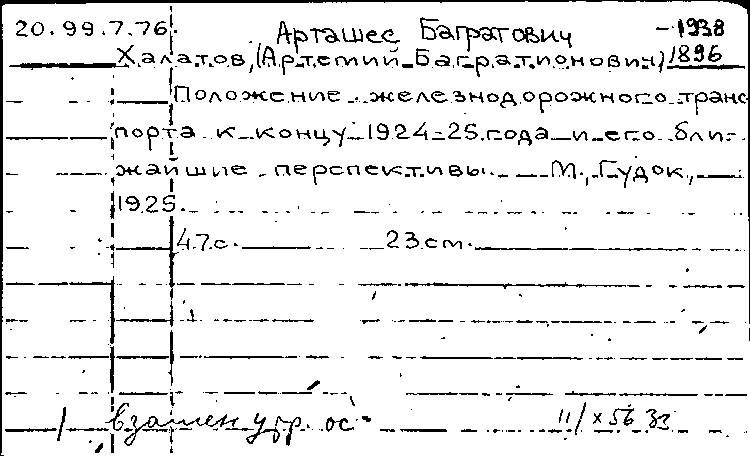 20.99.7.76. Арташес Багратович -1938
Халатов, (Артемий Багратионович) 1896
Положение железнодорожного транс
порта к концу 1924-25 года и его бли-
жайшие перспективы. М., Гудок,
1925.
47 с. 23 см.
взамен утр. ос-
11/X 56